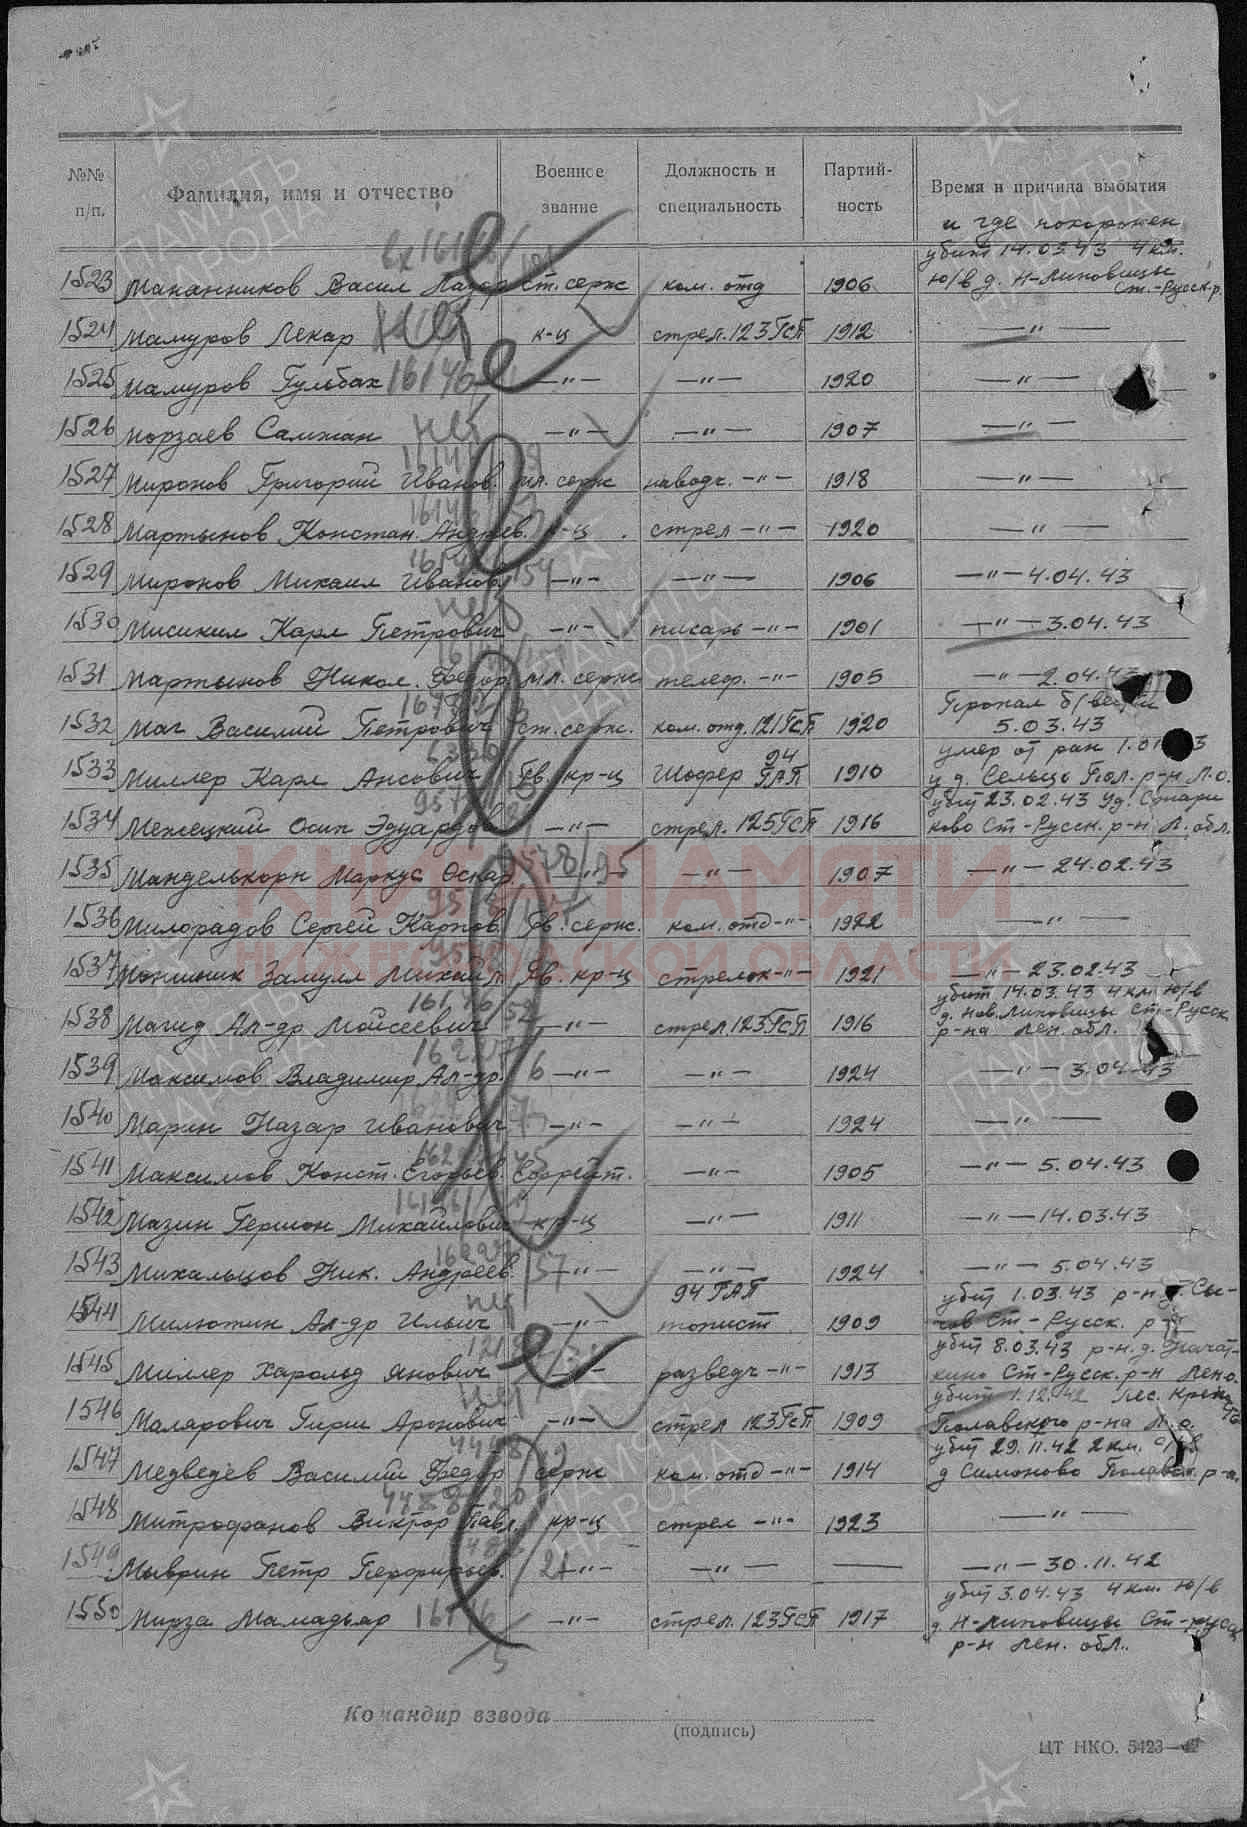 №№ п/п. Фамилия, имя и отчество Военное звание Должность и специальность Партий- ность Время и причина выбытия
и где похоронен
убит 14.03.43 4 км.
1523 Мананников Васил Назар ст. серж ком. отд 1906 ю/в д. Н-Липовицы
Ст.-Русск р.
1524 Мамуров Лекар нет к-ц стрел. 123 ГСП 1912 —"—
1525 Мамуров Гульбах 16146 —"— —"— 1920 —"—
1526 Морзаев Самжан нет —"— —"— 1907 —"—
1527 Миронов Григорий Иванов. мл. серж наводч. —"— 1918 —"—
1528 Мартынов Констан. Андреев. к-ц стрел —"— 1920 —"—
1529 Миронов Михаил Иванов —"— —"— 1906 —"— 4.04.43
1530 Карл Петрович —"— писарь —"— 1901 —"— 3.04.43
1531 Мартынов Никол. Федор мл. серж телеф. —"— 1905 —"— 2.04.43
Пропал б/вести
1532 Маг Василий Петрович ст. серж. ком. отд. 121 ГСП 1920 5.03.43
умер от ран
1533 Миллер Карл Ансович Гв. кр-ц Шофер 94 ГАП 1910 у д. Сельцо Пол. р-н Л.о.
убит 23.02.43 у д.
1534 Межецкий Осип Эдуардов —"— стрел. 125 ГСП 1916 Ст-Русск. р-н Л. обл.
1535 Манделькорн Маркус Оскар —"— —"— 1907 —"— 24.02.43
1536 Милорадов Сергей Карпов. Гв. серж. ком. отд —"— 1922 —"—
1537 Михайл. Гв. кр-ц стрелок —"— 1921 —"— 23.02.43
убит 14.03.43 4 км ю/в
д. Нов. Липовицы Ст-Русск
1538 Магид Ал-др Мойсеевич —"— стрел. 123 ГСП 1916 р-на Лен. обл.
1539 Максимов Владимир Ал-др. —"— —"— 1924 —"— 3.04.43
1540 Марин Назар Иванович —"— —"— 1924 —"—
1541 Максимов Конст. Егорьев. Ефрейт. —"— 1905 —"— 5.04.43
1542 Мазин Гершон Михайлович кр-ц —"— 1911 —"— 14.03.43
1543 Михальцов Ник. Андреев —"— —"— 1924 —"— 5.04.43
94 ГАП убит 1.03.43 р-н д. Сы-
1544 Милютин Ал-др Ильич нет —"— топист 1909 Ст-Русск. р-
убит 8.03.43 р-н. д.
1545 Миллер Харольд Янович —"— разведч —"— 1913 Ст-Русск. р-н Лен.о.
убит 1.12.42 лес.
1546 Малярович Гирш Аронович нет —"— стрел 123 ГСП 1909 Полавского р-на Л.о.
убит 29.11.42 2 км.
1547 Медведев Василий Федор серж ком. отд —"— 1914 д Симоново Полавск. р-н.
1548 Митрофанов Виктор Павл. кр-ц стрел —"— 1923 —"—
1549 Мыврин Петр Перфирьев. —"— —"— — —"— 30.11.42
убит 3.04.43 4 км. ю/в
1550 Мирза Мамадьяр 16146 —"— стрел. 123 ГСП 1917 д. Н-Липовицы Ст-Русск
р-н Лен. обл.
Командир взвода
(подпись)
ЦТ НКО. 5423—42
КНИГА ПАМЯТИ
НИЖЕГОРОДСКОЙ ОБЛАСТИ
ПАМЯТЬ НАРОДА